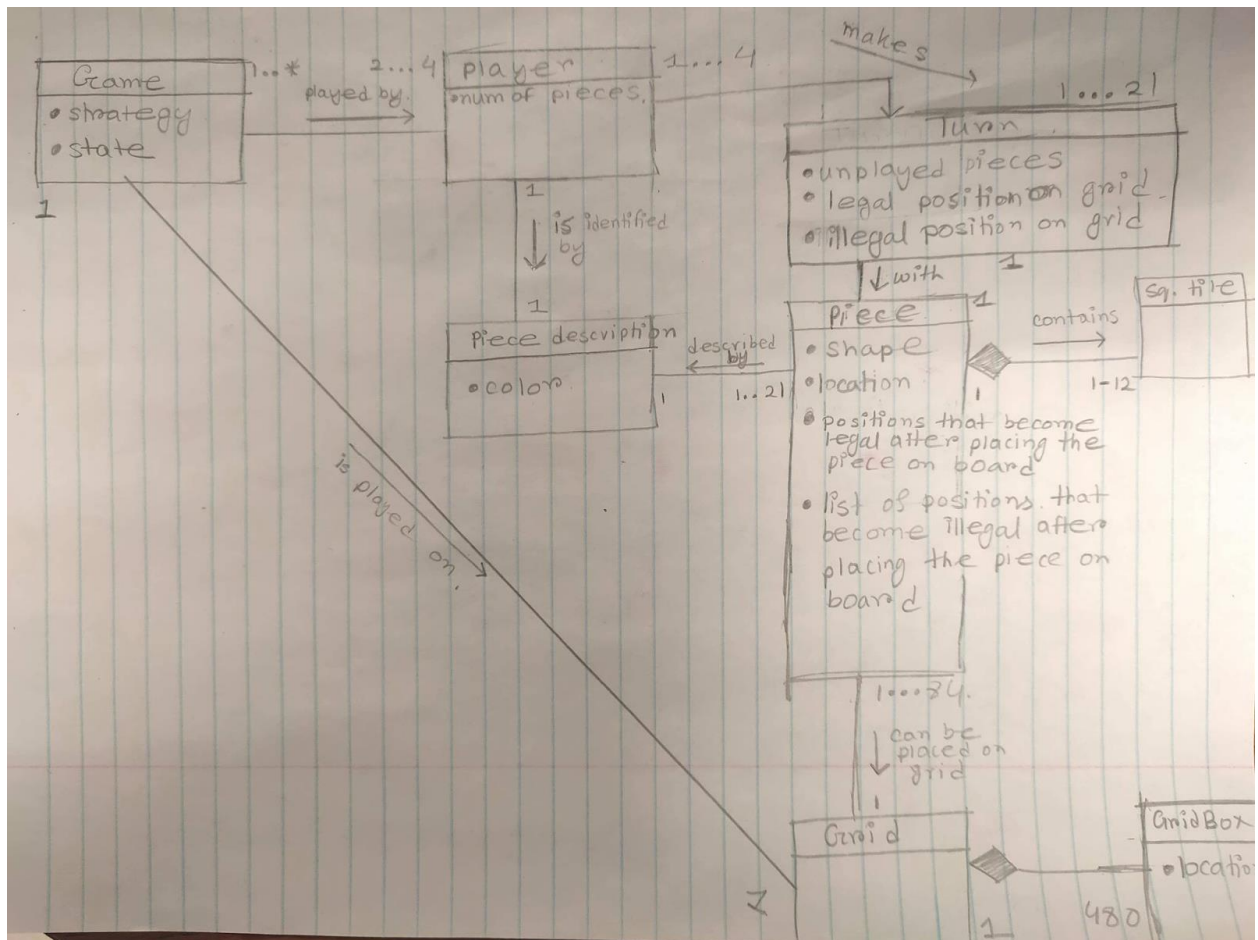 makes
Game
• strategy
• state
1..*
played by.
2...4
1
player
•num of pieces.
1...4
1...21
Turn
• unplayed pieces
• legal position on grid.
• illegal position on grid
1
1
is identified
by
1
with
Piece description
• color
described
by
1
1..21
Piece
• shape
• location
• positions that become
legal after placing the
piece on board
• list of positions. that
become illegal after
placing the piece on
board
1
contains
1
1-12
sq. tile
is played on.
1...84.
can be
placed on
grid
1
Grid
1
1
480
GridBox
• locatio